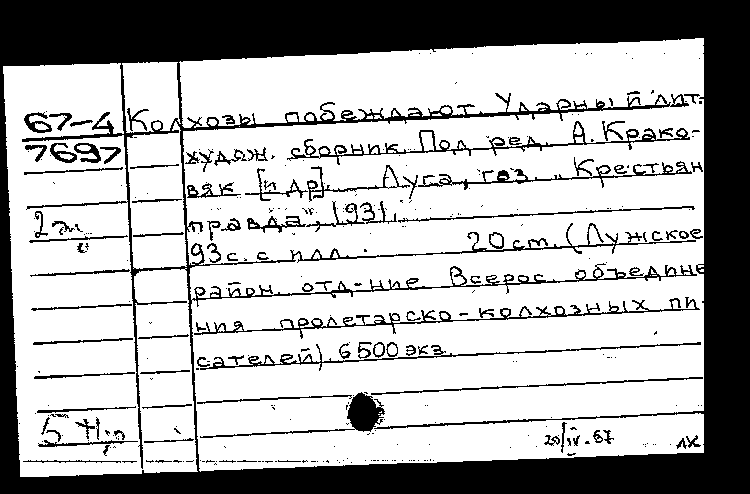 67-4 Колхозы побеждают. Ударный лит.-
7697 худож. сборник. Под ред. А. Крако-
вяк [и др]. Луга, газ. „Крестьян
2 правда", 1931.
93 с. с илл. 20 cm. (Лужское
район. отд-ние Всерос. объедине
ния пролетарско-колхозных пи-
сателей). 6500 экз.
5
20/IV-67 ЛК